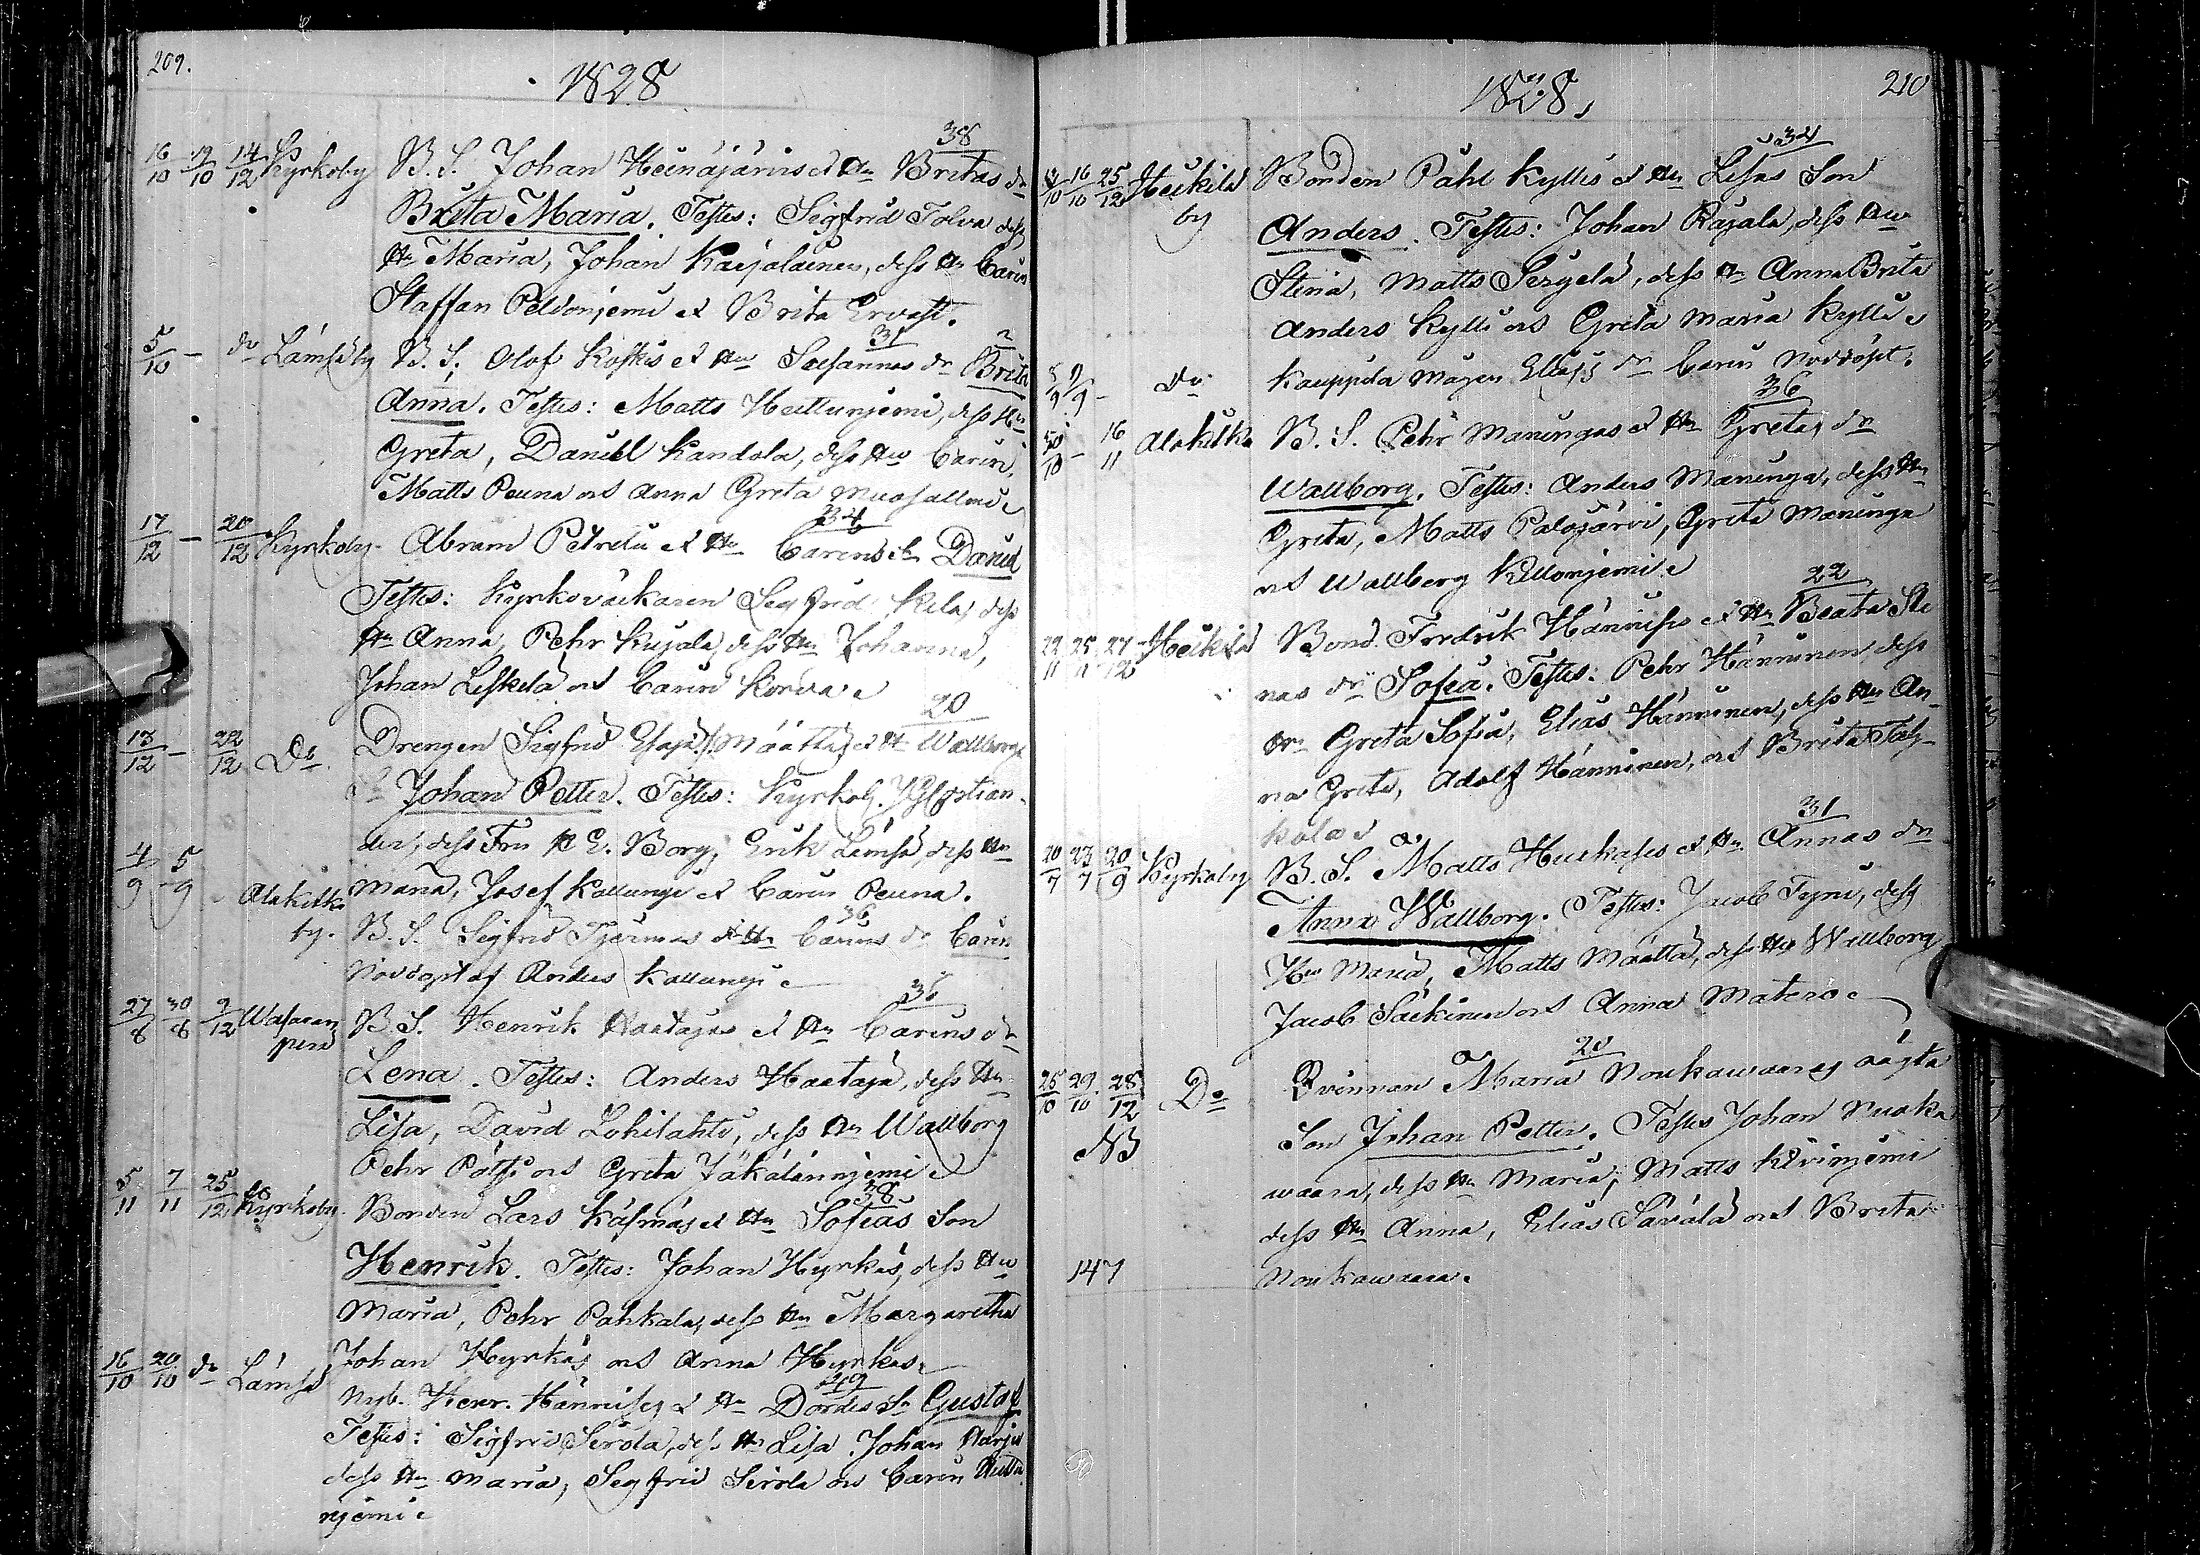 209.
1828
38
16/10 19/10 14/12 Kyrkoby B. S. Johan Heinäjärvis et Hu Britas dr
Brita Maria. Testes: Sigfrid Tolva dess
Hu Maria, Johan Karjalainen, dess Hu Carin
Staffan Peldoniemi et Brita Ervast.
31 2
5/10 – do Lämsäby B. S. Olof Koskis et Hu Susannas dr Brita
Anna. Testes: Matts Huttuniemi, dess Hu
Greta, Daniel Kandola, dess Hu Carin,
Matts Peuna och Anna Greta
34
17/12 – 20/12 Kyrkoby. Abram Petreli et Hu Carins Son Daniel
Testes: Kyrkoväktaren Sigfrid Kela, dess
Hu Anna, Pehr Kujala, dess Hu Johanna,
Johan Leskelä och Carin Korva
20
18/12 – 22/12 Do. Drengen Sigfrid Esajas s. Määttäs et Hu Wallborgs
Sn Johan Petter. Testes: Kyrkoh.
der, dess Fru E. Borg, Erik Lämsä, dess Hu
Maria, Josef Kallungi et Carin Peuna.
36
4/9 5/9 Alakitka
by. B. S. Sigfrid Tjermas et Hu Carins dr Carin
Nöddöpt af Anders Kallungi
36
27/8 30/8 9/12 Wasaran
perä B. S. Henrik Haatajas et Hu Carins dr
Lena. Testes: Anders Haataja, dess Hu
Lisa, David Lohilahti, dess Hu Wallborg
Pehr Pätsi och Greta Jäkäläniemi
38
5/11 7/11 25/12 Kyrkoby. Bonden Lars Käsmäs et Hu Sofias Son
Henrik. Testes: Johan Hyrkäs, dess Hu
Maria, Pehr Pahkala, dess Hu Margaretha
Johan Hyrkäs och Anna Hyrkäs.
16/10 20/10 do Lämsä Nyb. Henr. Hännises et Hu Dordes Sn Gustaf
Testes: Sigfrid Sirola, dess Hu Lisa, Johan Karju
dess Hu Maria, Sigfrid Sirola och Carin Hutta
njemi
1828.
210
34
16/10 25/12 Heikilä
by Bonden Påhl Kyllis et Hu Lisas Son
Anders. Testes: Johan Rajala, dess Hu
Stina, Matts Seryelä, dess Hu Anna Brita
Anders Kylli och Greta Maria Kylli
9/9 – Do Kauppila mågen Eliass dr Carin Nöddöpt.
36
10 – 16/11 Alakitka B. S. Pehr Maningas et Hu Gretas dr
Wallborg. Testes: Anders Maninga, dess Hu
Greta, Matts Palojärvi, Greta Maninga
och Wallborg Killoniemi
22
22/11 25/11 27/12 Heikilä Bond. Fredrik Hännises et Hu Beata Sti
nas dr Sofia. Testes: Pehr Hänninen, dess
Hu Greta Sofia, Elias Hänninen, dess Hu An-
na Greta, Adolf Hänninen, och Brita
kola
31
20/7 23/7 20/9 Kyrkoby B. S. Matts Huikases et Hu Annas dr
Anna Wallborg. Testes: Jacob Tyni, dess
Hu Maria, Matts Määttä, dess Hu Wallborg
Jacob Säkkinen och Anna Matero
20
25/10 29/10 28/12 Do Qvinnan Maria Noukawaaras oägta
NB Son Johan Petter. Testes Johan Nouka
waara, dess Hu Maria, Matts Kiviniemi
dess Hu Anna, Elias Säväla och Brita
147 Noukawaara.